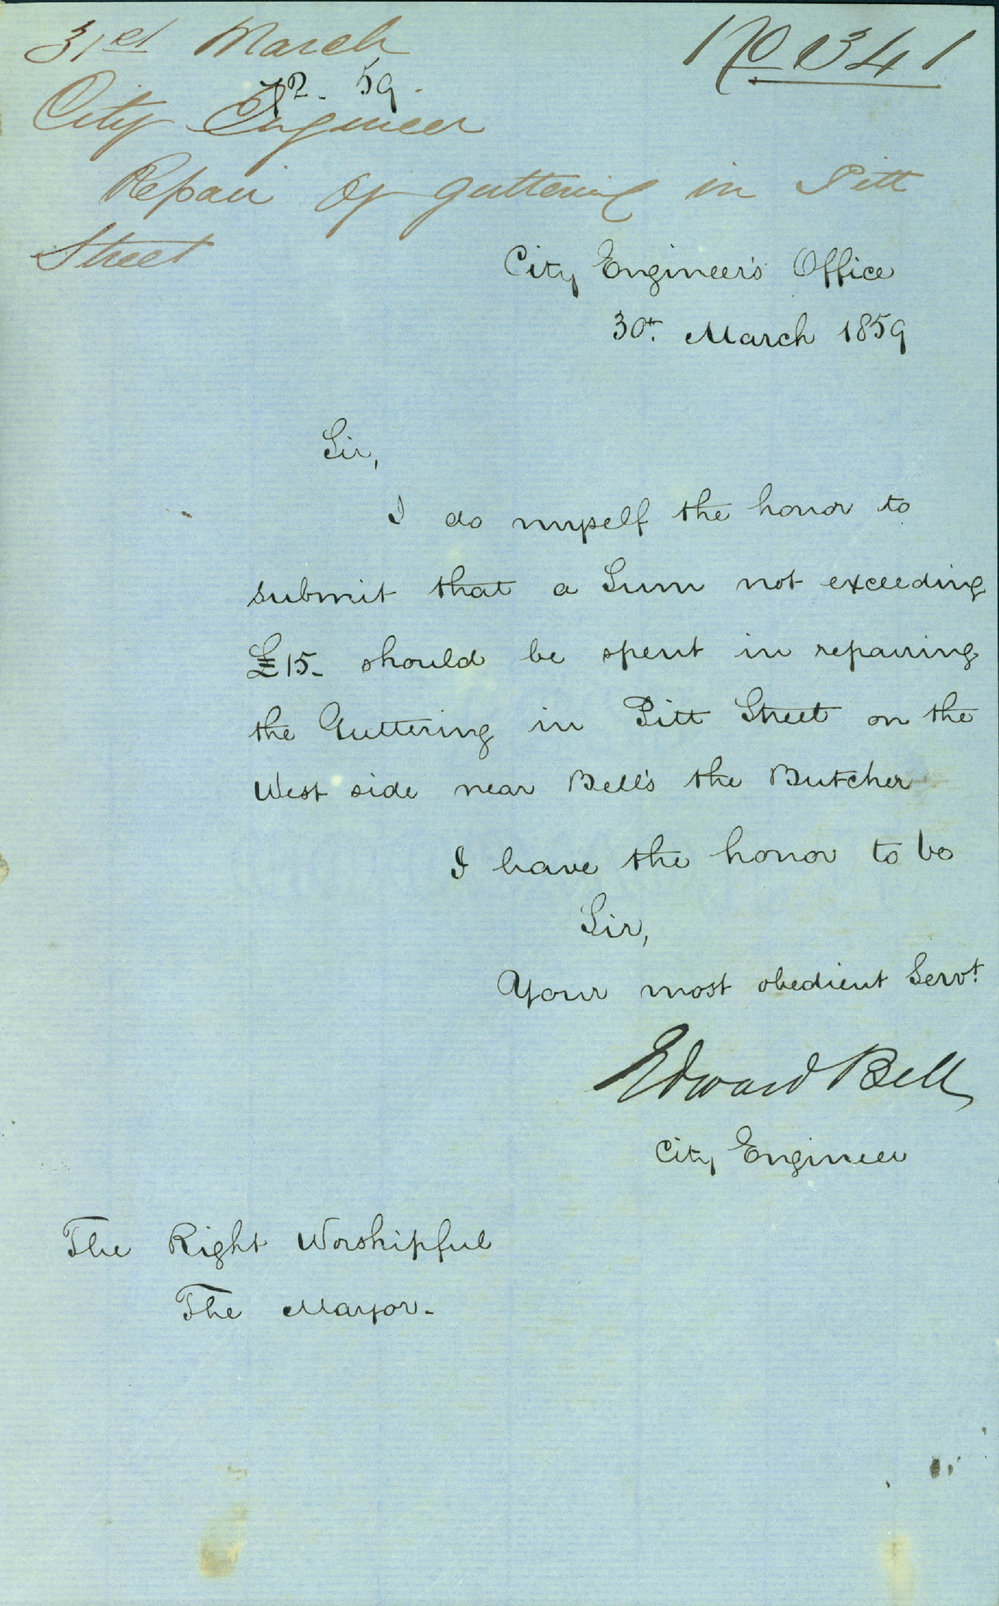 31st March
No 341
72. 59.
City Engineer
Repair of guttering in Pitt
Street
City Engineer's Office
30th. March 1859
Sir,
I do myself the honor to
submit that a Sum not exceeding
£15_ should be spent in repairing
the Guttering in Pitt Street on the
West side near Bell's the Butcher
I have the honor to be
Sir,
Your most obedient Servt.
Edward Bell
City Engineer
The Right Worshipful
The Mayor_